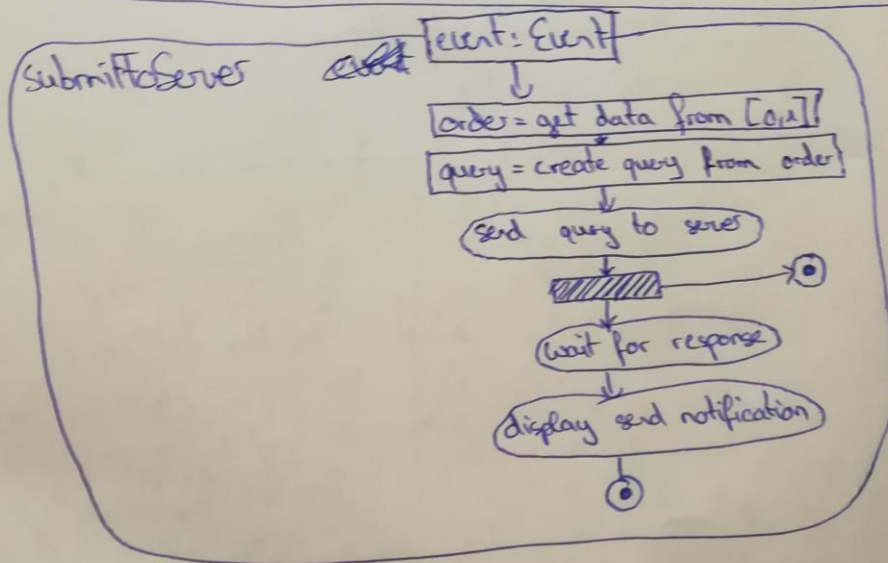 submittoServer
event: Event
order = get data from [0,1]
query = create query from order
send query to server
wait for response
display send notification